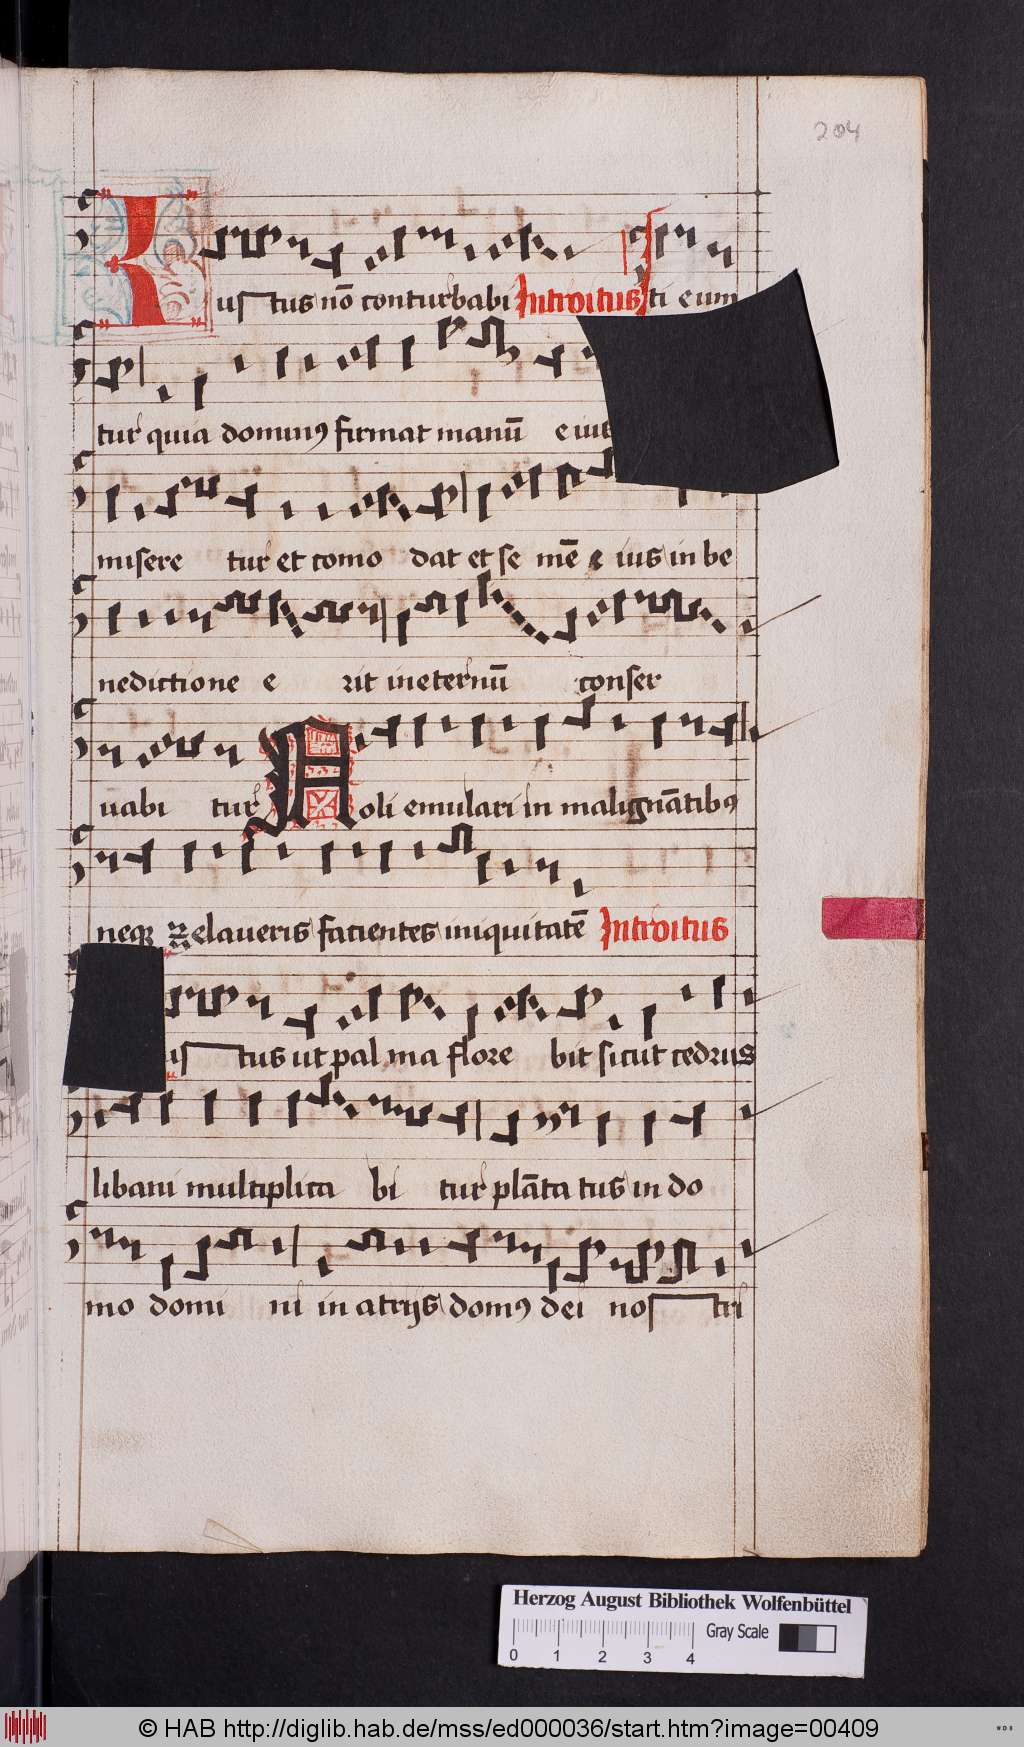 204
Iustus nō conturbabi Introitus tʒ eum
tur quia dominꝰ firmat manū eius
misere tur et como dat et se mē e ius in be
nedictione e rit in eternū conser
uabi tur Noli emulari in malignātibꝰ
neqꝫ zelaueris facientes iniquitatē Introitus
us tus ut pal ma flore bit sicut cedrus
libani multiplica bi tur plāta tus in do
mo domi ni in atrijs domꝰ dei nos tri
Herzog August Bibliothek Wolfenbüttel
Gray Scale
0 1 2 3 4
© HAB http://diglib.hab.de/mss/ed000036/start.htm?image=00409